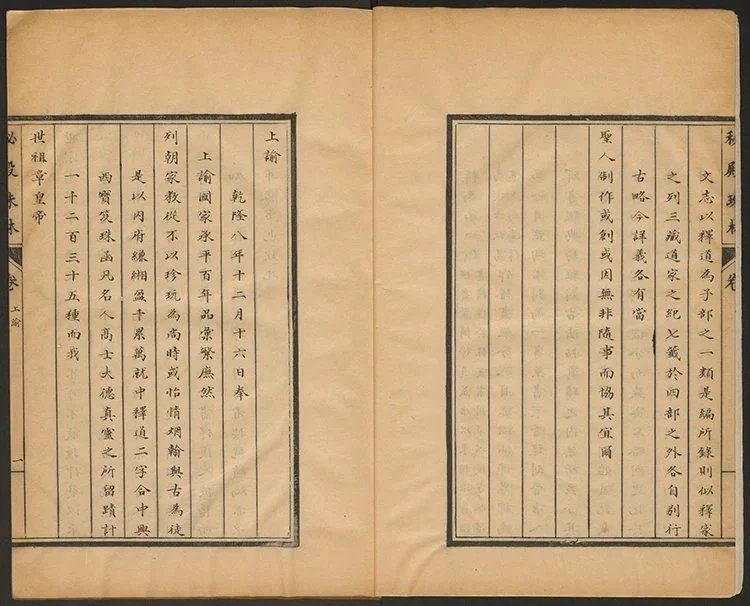 秘殿珠林
卷
文志以釋道為子部之一類是編所錄則似釋家
之列三藏道家之紀七籤於四部之外各自別行
古略今詳義各有當
聖人制作或創或因無非隨事而協其宜爾
上諭
乾隆八年十二月十六日奉
上諭國家承平百年品彙繁廡然
列朝家教從不以珍玩為尚時或怡情烟翰與古為徒
是以內府縹緗盈千累萬就中釋道二字合中與
西寶笈珠函凡名人高士大德真靈之所留蹟計
一千二百三十五種而我
世祖章皇帝
祕殿珠林
卷
上諭
一